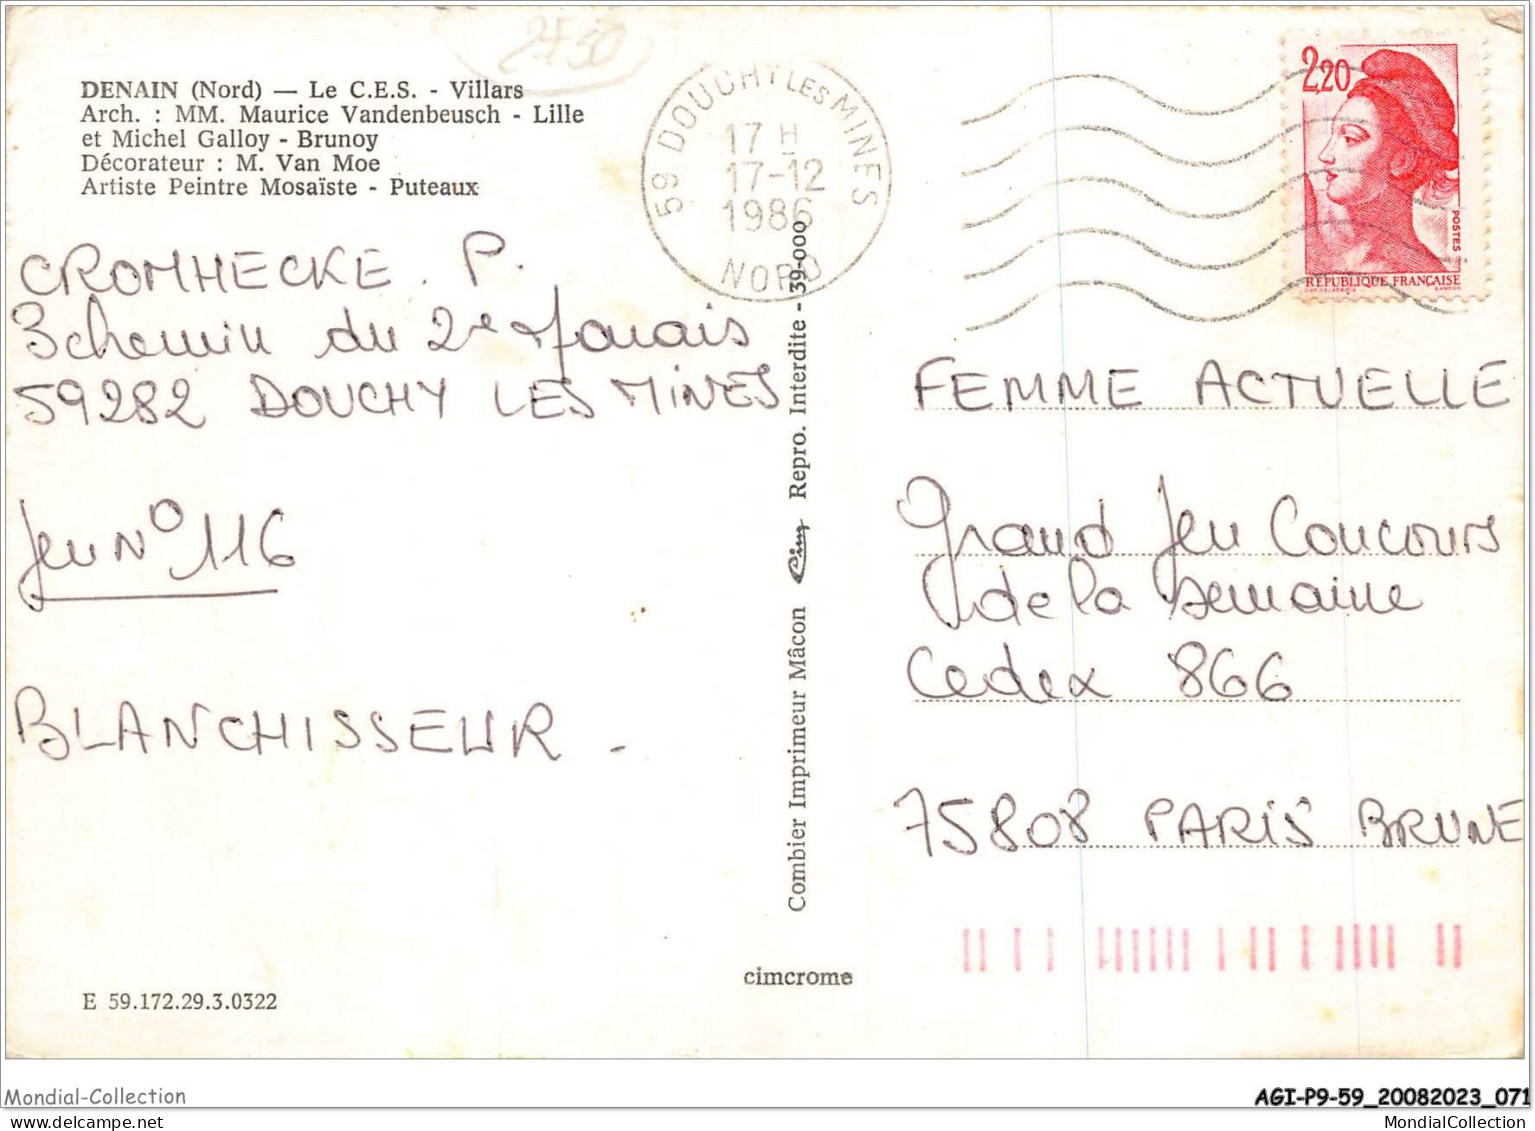 2730
DENAIN (Nord) — Le C.E.S. - Villars
Arch. : MM. Maurice Vandenbeusch - Lille
et Michel Galloy - Brunoy
Décorateur : M. Van Moe
Artiste Peintre Mosaïste - Puteaux
59 DOUCHY LES MINES
17 H
17-12
1986
NORD
2,20
POSTES
REPUBLIQUE FRANÇAISE
CROMHECKE . P.
3 chemin du 2e Marais
59282 DOUCHY LES MINES
Jeu N° 116
BLANCHISSEUR -
Combier Imprimeur Mâcon Cim Repro. Interdite - 39-000
FEMME ACTUELLE
Grand Jeu Concours
de la semaine
Cedex 866
75808 PARIS BRUNE
cimcrome
E 59.172.29.3.0322
Mondial-Collection
AGI-P9-59_20082023_071
MondialCollection